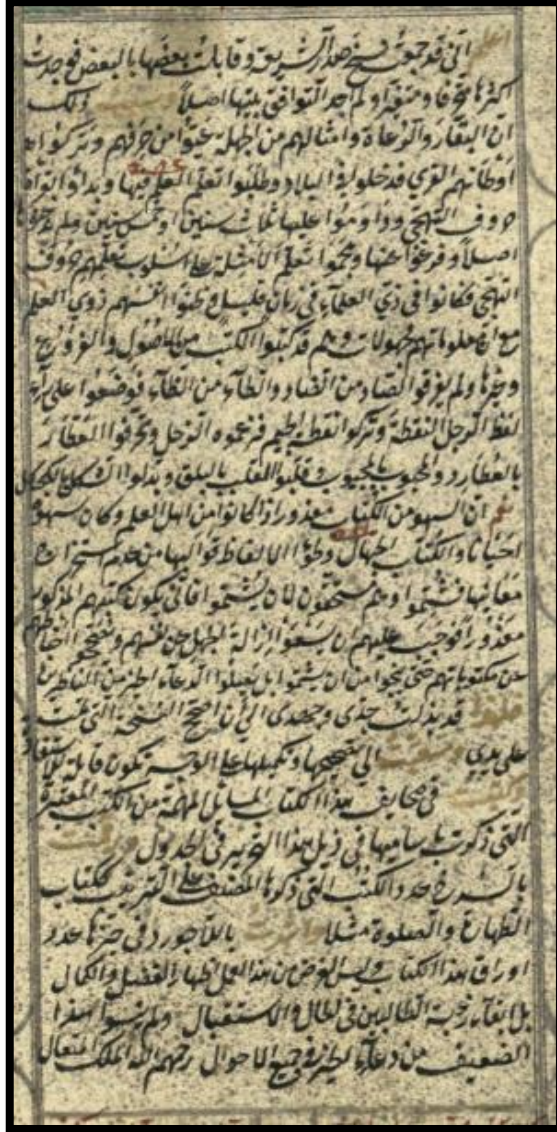 اعلم انى قد جمعت نسخ هذه الشريفة وقابلت بعضها بالبعض فوجدت
اكثرها محرفا ومتغيرا ولم اجد التوافق بينها اصلا وسبب ذلك
ان البقار والرعاة وامثالهم من الجهلة عيّوا من حرفهم وتركوا
اوطانهم القرى قد دخلوا فى البلاد وطلبوا تعلم العلم فيها وبدأوا
حروف التهجى وداوموا عليها ثلاث سنين او خمس سنين ولم يعرفوا
اصلا وفرغوا عنها تعلم الامثلة على اسلوب تعلمهم حروف
التهجى فكانوا فى زىّ العلماء فى زمان قليل وظنوا انفسهم ذوى العلم
مع ان معلوماتهم مجهولات وهم قد كتبوا الكتب من الاصول والفروع
وغيرها ولم يفرقوا الضاد من الصاد والطاء من الظاء فوضعوا على راء
لفظ الرجل النقطة وتركوا نقطة الجيم فزعموه الزحل وحرفوا العقار
بالعطارد والمحبوب بالمجبوب وقلبوا القلب بالبلق وبدلوا الشكل بالكل
نعم ان السهو من الكتاب معذور اذا كانوا من اهل العلم وكان سهوهم
احيانا والكتاب الجهال الالفاظ قواليها من عدم استخراج
معانيها فشتموا وهم مستحقون لان يشتموا فانى يكون كتبهم المذكور
معذورا فوجب عليهم ان يسعوا ازالة الجهل عن انفسهم وتصحيح
عن مكتوباتهم حتى ينجوا من ان يشتموا بل يصلوا الدعاء الخير من الناظرين
قد بذلت جدى وجهدى الى ان اصحح النسخة التى تمت
على يدى وسعيت الى تصحيحها وتكميلها على الوجه تكون قابلة للاستفادة
وكتبت فى صحايف هذا الكتاب المسائل المهمة من الكتب المعتبرة
التى ذكرت باساميها فى ذيل هذا التحرير فى الجدول ورقمت
بالسرخ عدد الكتب التى ذكرها المصنف على التقريب ككتاب
الطهارة والصلوة مثلا واشرت باللاجورد فى حيزها عدد
اوراق هذا الكتاب وليس الغرض من هذا العمل اظهار الفضل والكمال
بل ابقاء رغبة الطالبين فى الحال والاستقبال ولم ينسوا هذا
الضعيف من دعاء الخير فى جميع الاحوال رحمهم الله الملك المتعال